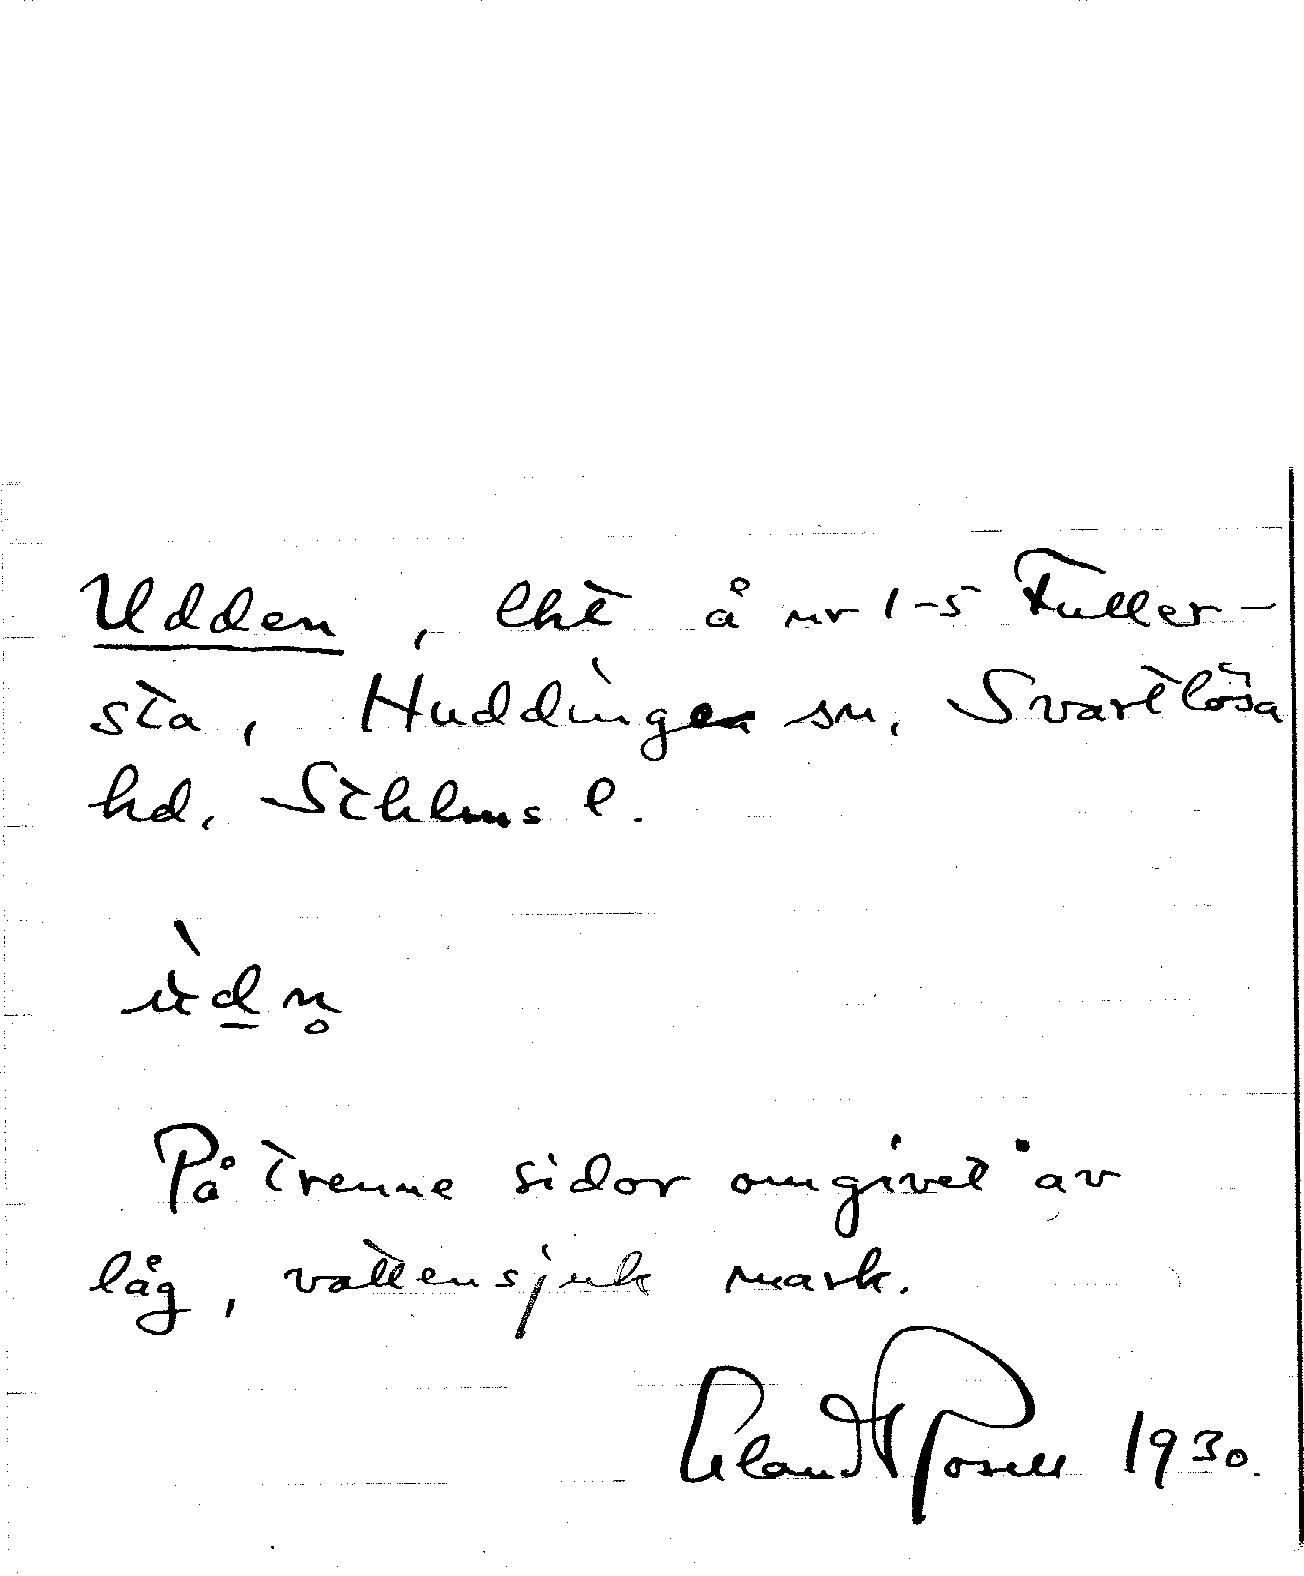 Udden, lht å nr 1-5 Fuller-
sta, Huddinge sn, Svartlösa
hd, Sthlms l.
ùd̲n̥
På trenne sidor omgivet av
låg, vattensjuk mark.
1930.